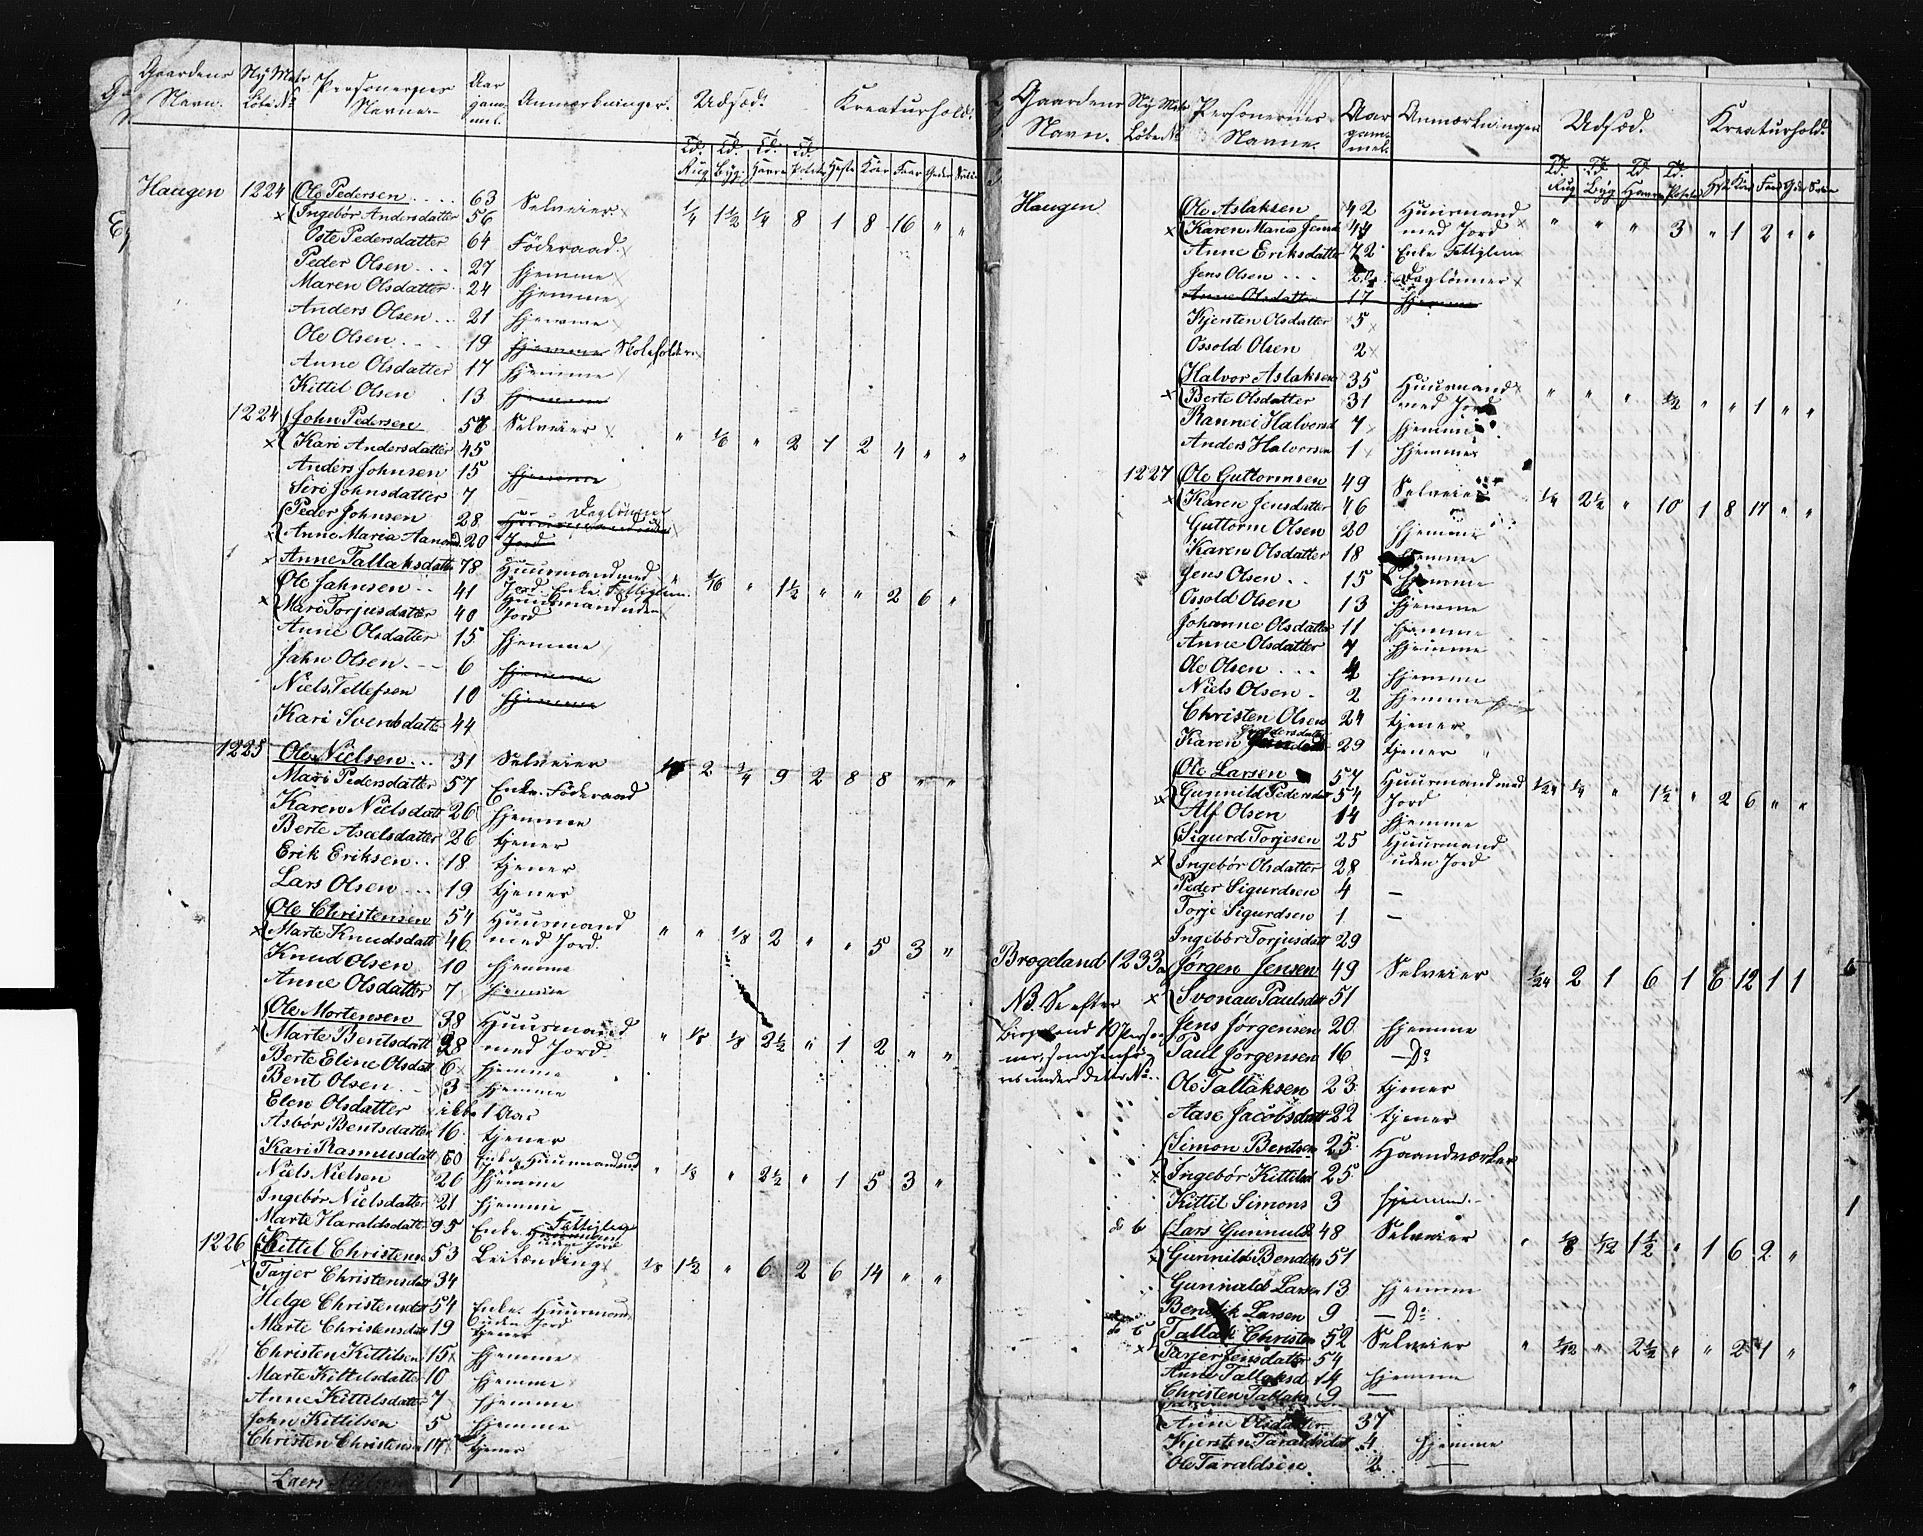 Gaardens Navn. Ny Matr Løbe No Personernes Navne Aar gammel. Anmærkninger. Udsæd. Kreaturhold.
Td. Rug Td. Byg. Td. Havre Td. Poteter Heste Køer Faar Geder Sviin
Haugen 1224 Ole Pedersen 63 Selveier 1/4 1 1/2 1/4 8 1 8 16 " "
Ingebør Andersdatter 56
Oste Pedersdatter 64 Föderaad
Peder Olsen 27 hjemme
Maren Olsdatter 24 hjemme
Anders Olsen 21 hjemme
Ole Olsen 19 hjemme Skoleholder
Anne Olsdatter 17 hjemme
Kittil Olsen 13 hjemme
1224 John Pedersen 57 Selveier " 1/6 " 2 1 2 4 " "
Kari Andersdatter 45
Anders Johnsen 15 hjemme
Siri Johnsdatter 7
Peder Johnsen 28 Daglønner
Huusmand uden
Anne Maria Aanond 20 Jord
Anne Tallaksdatter 78 Huusmand med " 1/16 " 1 1/2 " " 2 6 "
Jord Enke Fattiglem
Ole Jahnsen 41 Huusmand uden
Mari Torjusdatter 40 Jord
Anne Olsdatter 15 hjemme
Jahn Olsen 6 hjemme
Niels Tellefsen 10 hjemme
Kari Svendsdatter 44
1225 Ole Nielsen 31 Selveier 2 3/4 9 2 8 8 " "
Mari Pedersdatter 57 Enke Föderaad
Karen Nielsdatt 26 hjemme
Berte Asælsdatter 26 tjener
Erik Eriksen 18 tjener
Lars Olsen 19 tjener
Ole Christensen 54 Huusmand " " 1/8 2 " " 5 3 "
Marte Knudsdatt 46 med Jord
Knud Olsen 10 hjemme
Anne Olsdatter 7 hjemme
Ole Mortensen 38 Huusmand " 1/8 1/8 2 1/2 " 1 2 " "
Marte Bentsdatt 28 med Jord
Berte Eline Olsdatt 6 hjemme
Bent Olsen 3 hjemme
Elen Olsdatter ikke 1 Aar
Asbør Bentsdatter 16 tjener
Kari Rasmusdatt 60 Enke Huusmand md " 1/8 " 2 1/2 " 1 5 3 "
Jord
Niels Nielsen 26 hjemme
Ingebør Nielsdatter 21 hjemme
Marte Haraldsdatt 95 Enke Fattiglem
Huusmand uden Jord
1226 Kittil Christense 53 Leilænding 1/8 1 1/2 " 6 2 6 14 " "
Tarjer Christensdatt 34
Helge Christensdat 54 Enke. Huusmand
uden Jord
Marte Christensdatt 19 tjener
Christen Kittilsen 15 hjemme
Marte Kittilsdatter 10 hjemme
Anne Kittilsdatter 7 hjemme
John Kittilsen 5 hjemme
Christen Christense 14 tjener
Laers Nielsen 1
Gaardens Navn. Ny Matr Løbe No Personernes Navne. Aar gammel. Anmærkninger Udsæd. Kreaturhold.
Td. Rug Td. Byg Td Havre Td. Poteter Hst Køer Faar Gder Svin
Haugen Ole Aslaksen 42 Huusmand " " " 3 " 1 2 " "
Karen Maria Jensd 44 med Jord
Anne Eriksdatter 72 Enke Fattiglem
Jens Olsen 20 Daglønner
Anne Olsdatter 17 hjemme
Kjersten Olsdatter 5
Ossold Olsen 2
Halvor Aslaksen 35 Huusmand " " " 1/2 " " 1 " "
Berte Olsdatter 31 med Jord
Rannei Halvorsd 7 hjemme
Anders Halvorsen 1 hjemme
1227 Ole Guttormsen 49 Selveier 1/4 2 1/2 " 10 1 8 17 " "
Karen Jensdatter 46
Guttorm Olsen 20 hjemme
Karen Olsdatter 18 hjemme
Jens Olsen 15 hjemme
Ossold Olsen 13 hjemme
Johanne Olsdatter 11 hjemme
Anne Olsdatter 7 hjemme
Ole Olsen 4 hjemme
Niels Olsen 2 hjemme
Christen Olsen 24 tjener
Karen 29 tjener "
Ole Larsen 57 Huusmand med 1/24 1/4 " 1 1/2 " 2 6 " "
Gunnild Pedersdat 54 Jord
Alf Olsen 14 hjemme
Sigurd Torjesen 25 Huusmand
Ingebør Olsdatter 28 uden Jord
Peder Sigurdsen 4 —
Torje Sigurdsen 1 —
Ingebør Torjusdatt 29
Brogeland 1233a Jørgen Jensen 49 Selveier 1/24 2 1 6 1 6 12 1 1
NB. Se efter Svonau Paulsdat 51
Jens Jørgensen 20 hjemme
Paul Jørgensen 16 — Do
Ole Tallaksen 23 tjener
Aase Jacobsdatt 22 tjener
Simon Bentsen 25 Haandværker
Ingebør Kittilsd 25
Kittil Simons 3 hjemme
Lars Gunnuls 48 Selveier " 1/8 1/12 1 1/2 " 1 6 2 "
Gunnild Bendiks 51
Gunnald Larsen 13 hjemme
Bendik Larsen 9 — Do
Tallak Christen 52 Selveier " 1/12 " 2 1/2 " " 2 1 "
Tarjer Jensdatter 54
Anne Tallaksd 14 hjemme
Christen Tallaks 9 —
Anne Olsdatter 37
Kjersten Taraldsdat 4 hjemme
Ole Taraldsen 2 —